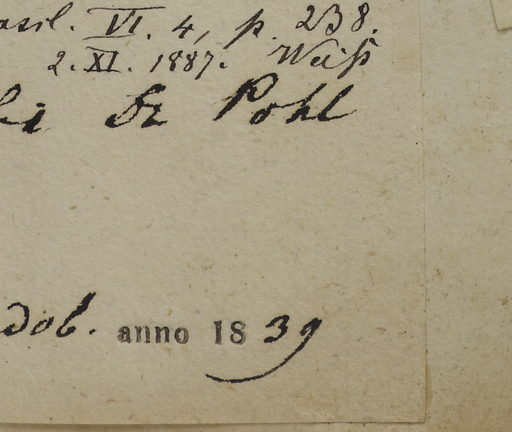 asil. VI. 4, p. 238.
2. XI. 1887. Weiß
Dr Pohl
dob. anno 1839